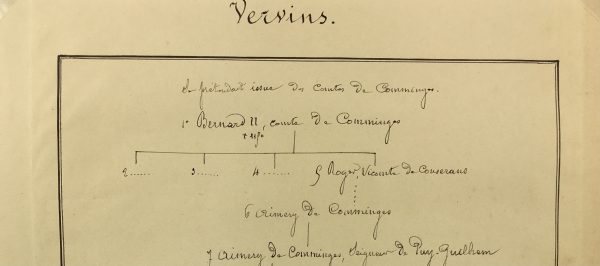 Vervins.
Se prétendait issue des comtes de Comminges.
1º Bernard II, comte de Comminges
+ 1150
2...... 3...... 4...... 5 Roger, Vicomte de Couserans
6 Aimery de Comminges
7 Aimery de Comminges, Seigneur de Puy-Guilhem